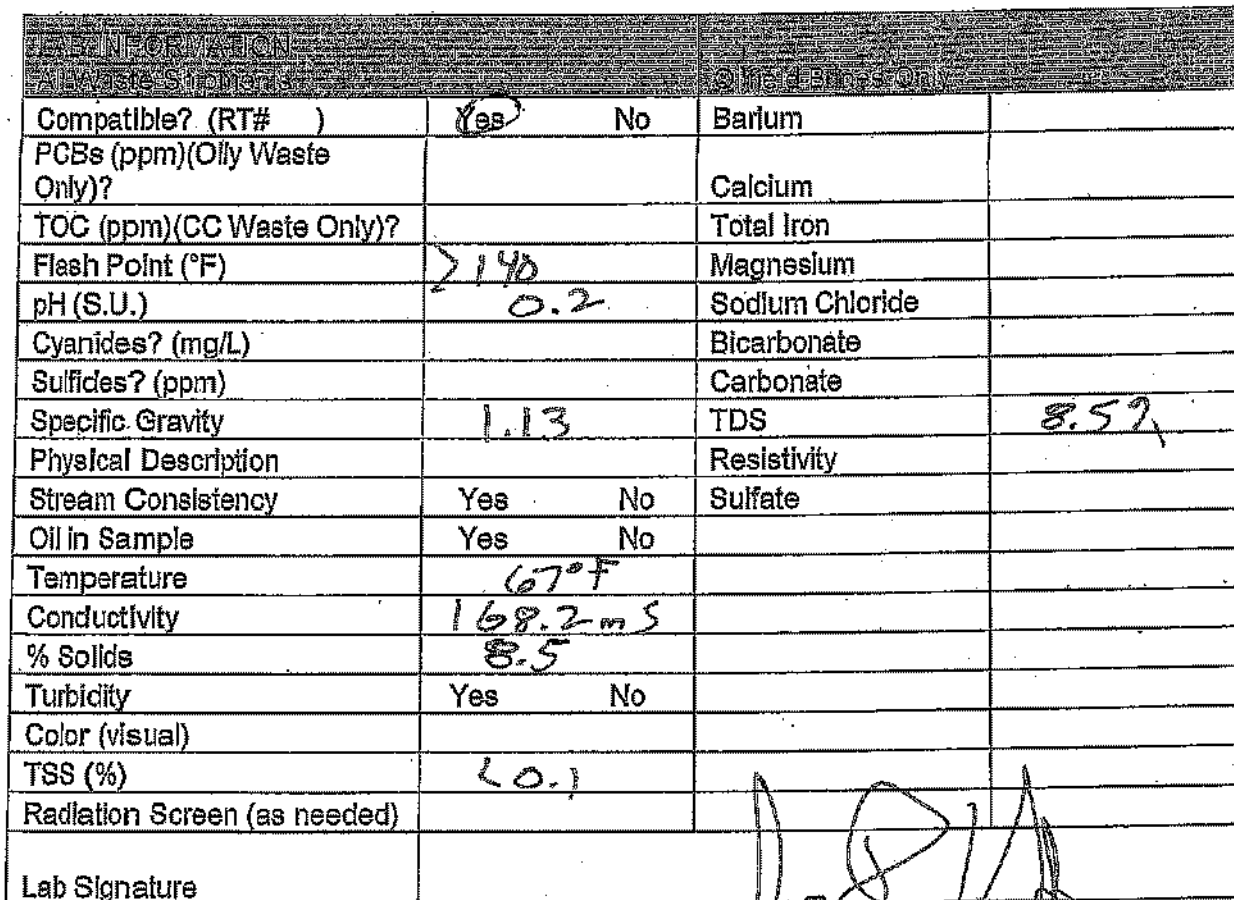 LAB INFORMATION
All Waste Shipments Oilfield Brines Only
Compatible? (RT# ) Yes No Barium
PCBs (ppm)(Oily Waste
Only)? Calcium
TOC (ppm)(CC Waste Only)? Total Iron
Flash Point (°F) >140 Magnesium
pH (S.U.) 0.2 Sodium Chloride
Cyanides? (mg/L) Bicarbonate
Sulfides? (ppm) Carbonate
Specific Gravity 1.13 TDS 8.5%
Physical Description Resistivity
Stream Consistency Yes No Sulfate
Oil in Sample Yes No
Temperature 67°F
Conductivity 168.2 mS
% Solids 8.5
Turbidity Yes No
Color (visual)
TSS (%) <0.1
Radiation Screen (as needed)
Lab Signature